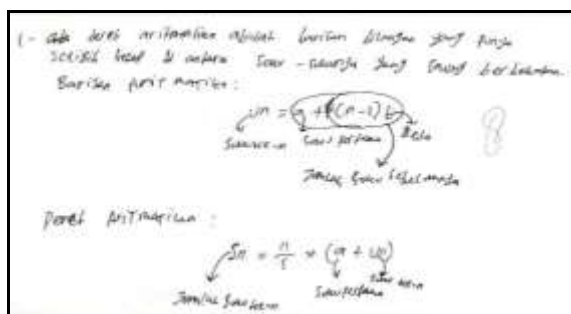 1- deret aritmatika adalah barisan bilangan yang punya
selisih tetap di antara suku-sukunya yang saling berdekatan.
Barisan Aritmatika:
Un = a + (n-1) b
Suku ke-n suku pertama Beda
Jumlah suku sebelumnya
Deret Aritmatika:
Sn = (a + Un)
Jumlah suku ke-n suku pertama suku ke-n
8